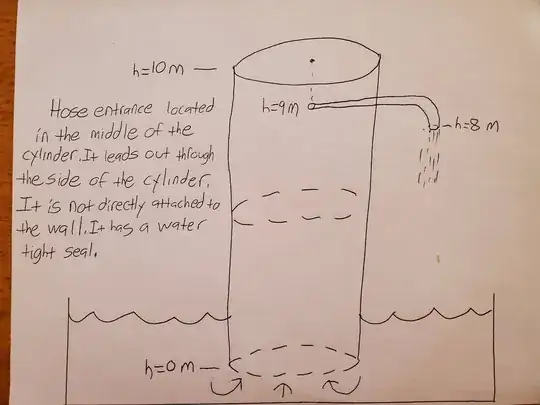 h=10 m
h=9m
h=8 m
Hose entrance located
in the middle of the
cylinder. It leads out through
the side of the cylinder.
It is not directly attached to
the wall. It has a water
tight seal.
h=0 m